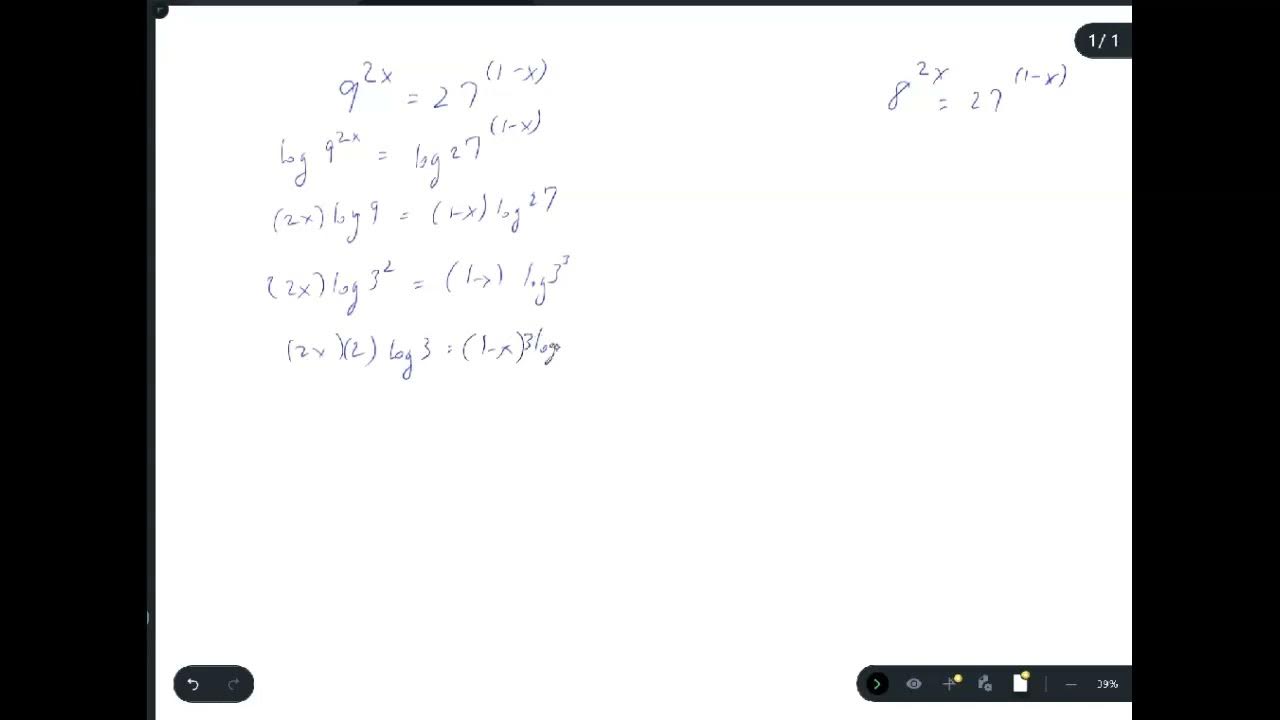 1/1
9^2x = 27^(1-x)
log 9^2x = log 27^(1-x)
(2x) log 9 = (1-x) log 27
(2x) log 3^2 = (1-x) log 3^3
(2x)(2) log 3 = (1-x) 3 log
8^2x = 27^(1-x)
39%